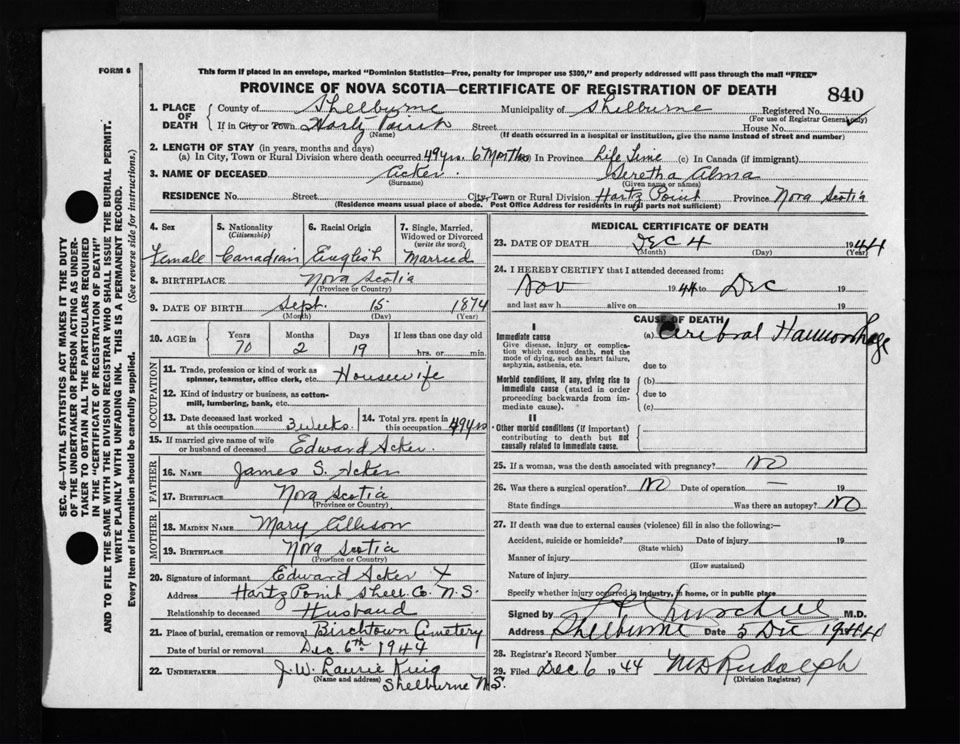 FORM 6
This form if placed in an envelope, marked "Dominion Statistics—Free, penalty for improper use $300," and properly addressed will pass through the mail "FREE"
PROVINCE OF NOVA SCOTIA—CERTIFICATE OF REGISTRATION OF DEATH
840
1. PLACE OF DEATH
County of Shelburne Municipality of Shelburne Registered No.
(For use of Registrar General only)
If in City or Town Hartz Point Street House No.
(Name) (If death occurred in a hospital or institution, give the name instead of street and number)
2. LENGTH OF STAY (in years, months and days)
(a) In City, Town or Rural Division where death occurred 49 yrs. 6 Months (b) In Province Life Time (c) In Canada (if immigrant)
3. NAME OF DECEASED Acker. Seretha Alma
(Surname) (Given name or names)
RESIDENCE No. Street City, Town or Rural Division Hartz Point Province Nova Scotia
(Residence means usual place of abode. Post Office Address for residents in rural parts not sufficient)
4. Sex 5. Nationality (Citizenship) 6. Racial Origin 7. Single, Married, Widowed or Divorced (write the word)
Female Canadian English Married
8. BIRTHPLACE Nova Scotia
(Province or Country)
9. DATE OF BIRTH Sept. 15 1874
(Month) (Day) (Year)
10. AGE in Years Months Days If less than one day old
70 2 19 hrs. or min.
OCCUPATION
11. Trade, profession or kind of work as spinner, teamster, office clerk, etc. Housewife
12. Kind of industry or business, as cotton-mill, lumbering, bank, etc.
13. Date deceased last worked at this occupation 3 weeks.
14. Total yrs. spent in this occupation 49 yrs
15. If married give name of wife or husband of deceased Edward Acker.
FATHER
16. NAME James S. Acker
17. BIRTHPLACE Nova Scotia
(Province or Country)
MOTHER
18. MAIDEN NAME Mary Allison
19. BIRTHPLACE Nova Scotia
(Province or Country)
20. Signature of informant Edward Acker X
Address Hartz Point Shell. Co. N.S.
Relationship to deceased Husband
21. Place of burial, cremation or removal Birchtown Cemetery
Date of burial or removal Dec. 6th 1944
22. UNDERTAKER J. W. Laurie King
(Name and address)
Shelburne N.S.
MEDICAL CERTIFICATE OF DEATH
23. DATE OF DEATH Dec 4 1944
(Month) (Day)
24. I HEREBY CERTIFY that I attended deceased from:
Nov 1944 to Dec 19
and last saw h alive on 19
CAUSE OF DEATH
I
Immediate cause (a) Cerebral Haemorrhage
Give disease, injury or complication which caused death, not the mode of dying, such as heart failure, asphyxia, asthenia, etc.
due to
Morbid conditions, if any, giving rise to immediate cause (stated in order proceeding backwards from immediate cause).
(b)
due to
(c)
II
Other morbid conditions (if important) contributing to death but not causally related to immediate cause.
25. If a woman, was the death associated with pregnancy? NO
26. Was there a surgical operation? NO Date of operation — 19
State findings Was there an autopsy? NO
27. If death was due to external causes (violence) fill in also the following:—
Accident, suicide or homicide? Date of injury 19
(State which)
Manner of injury
(How sustained)
Nature of injury
Specify whether injury occurred in industry, in home, or in public place
Signed by Churchill M.D.
Address Shelburne Date 5 Dec 1944
28. Registrar's Record Number
29. Filed Dec 6 1944 M D Rudolph
(Division Registrar)
SEC. 46—VITAL STATISTICS ACT MAKES IT THE DUTY
OF THE UNDERTAKER OR PERSON ACTING AS UNDER-
TAKER TO OBTAIN ALL THE PARTICULARS REQUIRED
IN THE "CERTIFICATE OF REGISTRATION OF DEATH"
AND TO FILE THE SAME WITH THE DIVISION REGISTRAR WHO SHALL ISSUE THE BURIAL PERMIT.
WRITE PLAINLY WITH UNFADING INK. THIS IS A PERMANENT RECORD.
Every item of information should be carefully supplied. (See reverse side for instructions.)